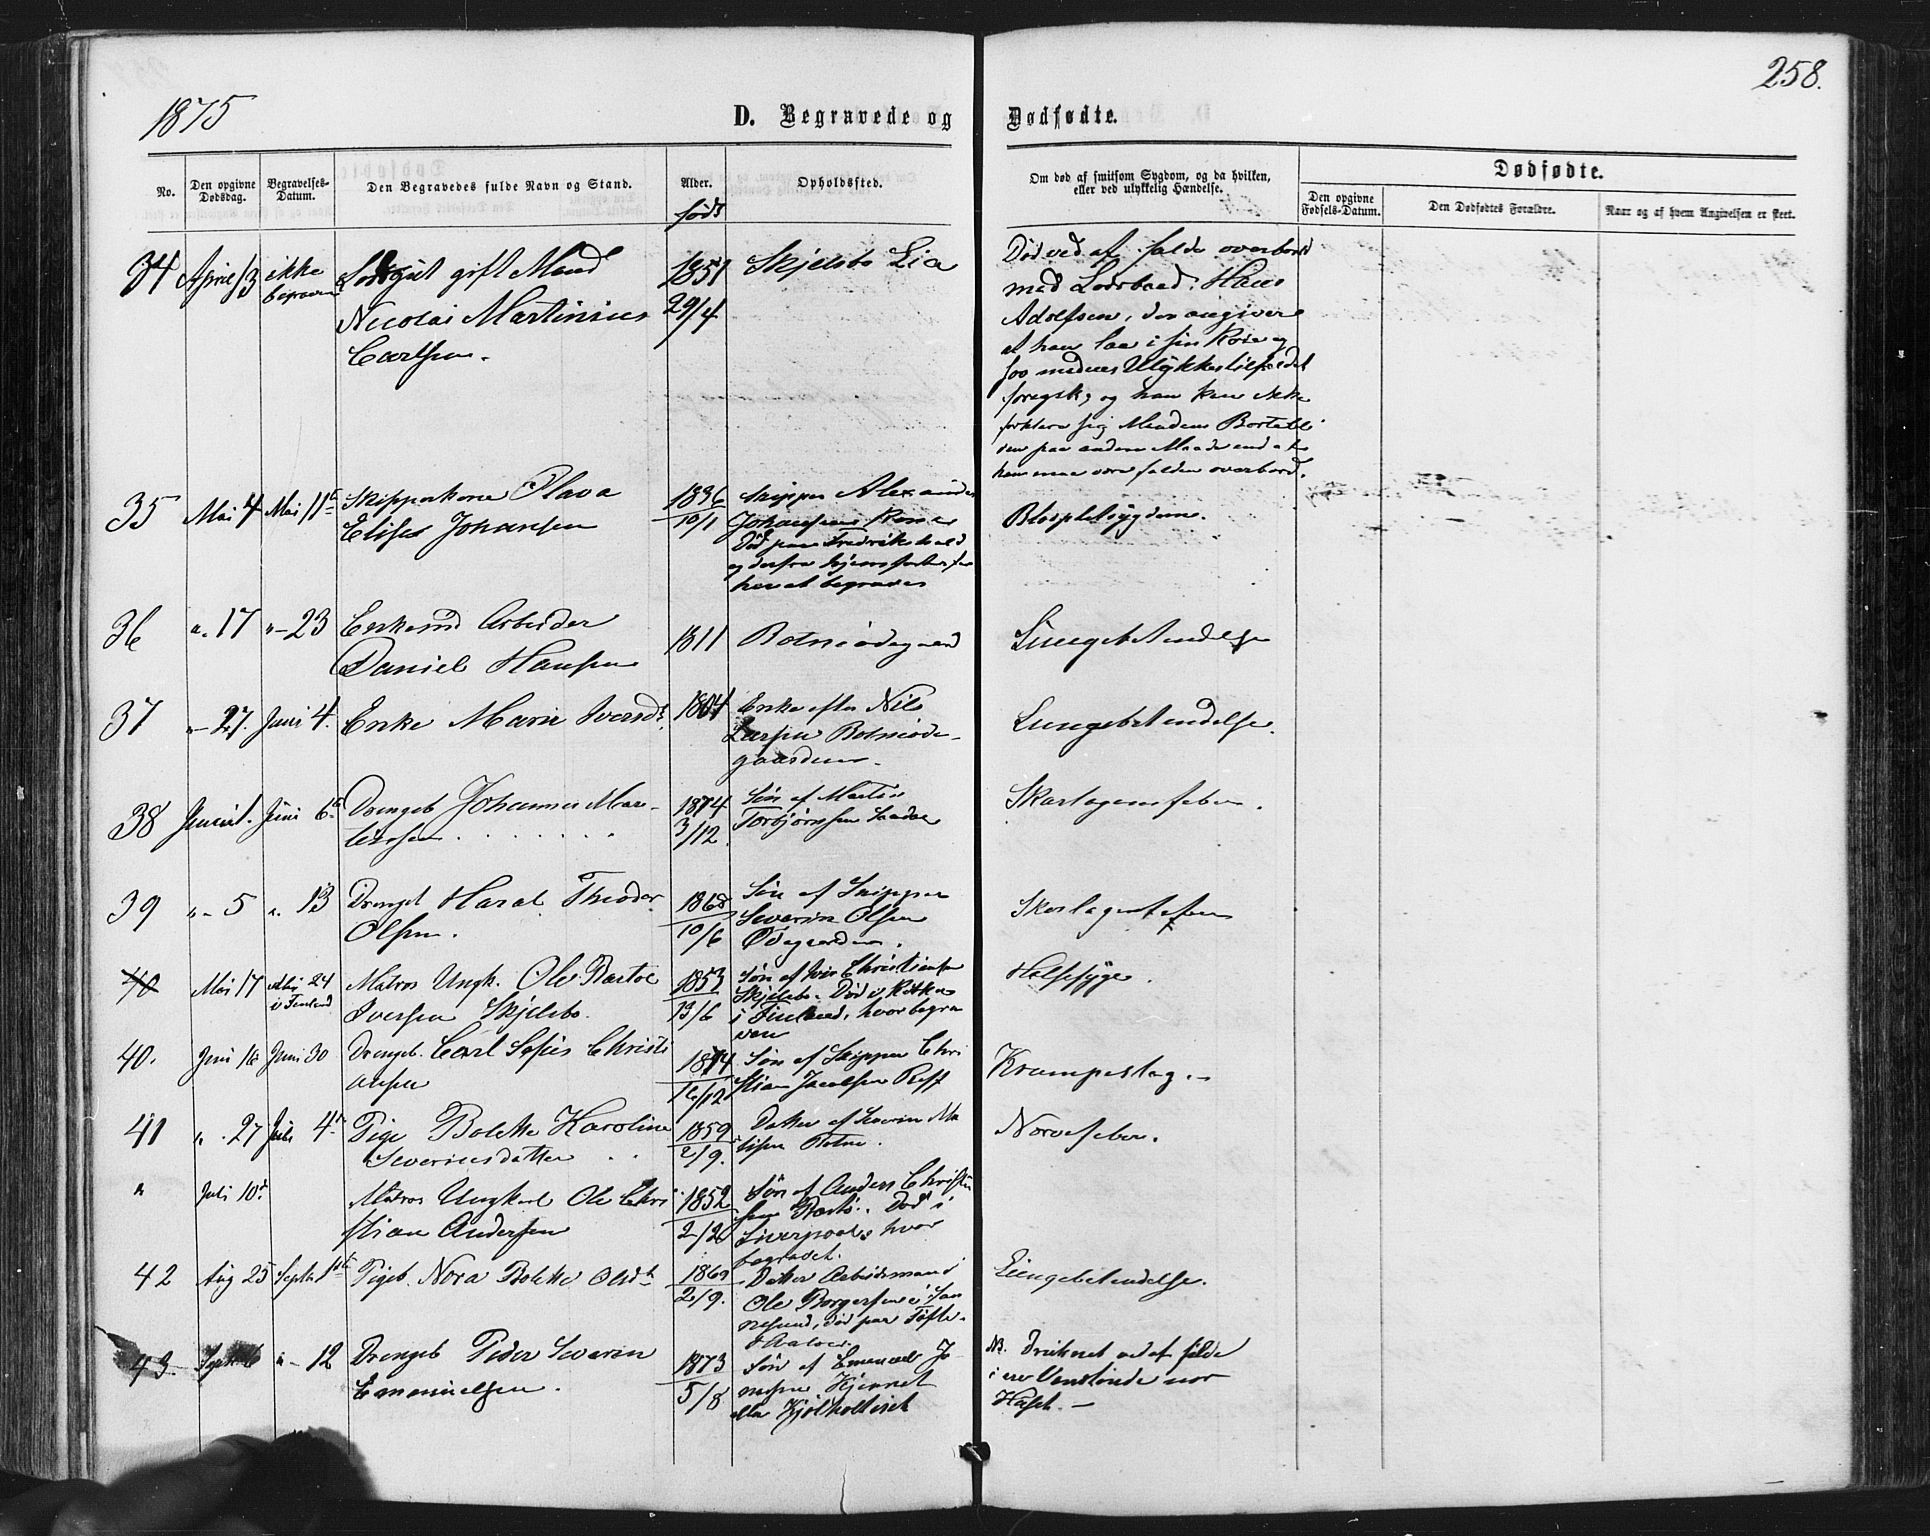 258.
1875
D. Begravede og Dødfødte.
No.
Den opgivne Dødsdag.
Begravelses-Datum.
Den Begravedes fulde Navn og Stand.
Alder.
født
Opholdssted.
Om død af smitsom Sygdom, og da hvilken, eller ved ulykkelig Hændelse.
Dødfødte.
Den opgivne Fødsels-Datum.
Den Dødfødtes Forældre.
Naar og af hvem Angivelsen er skeet.
34 April 13 ikke begraven
gift Mand
Nicolai Martinius
Carlsen.
1851
29/4
Skjelsbo Lia
Død ved at falde overbord
med Lodsbaad. Hans
Adolfsen, der angiver
at han laa i sin Køie og
sov medens Ulykkestilfældet
foregik, og han kan ikke
forklare sig Mandens Bortebli
ven paa anden Maade end at
han maa være falden overbord.
35 Mai 4 Mai 11te
Skipperkone Olava
Elise Johansen
1836
10/1
Skipper Alexander
Johansens Kone
Død paa Fredrikshald
og derfra
her at begraves
Blegesygdom.
36 " 17 "-23
Enkemd Arbeider
Daniel Hansen
1811
Botneødegaard
Lungebetændelse
37 "-27. Juni 4.
Enke Marie Iversdt.
1804
Enke efter Nils
Larsen Botneøde-
gaarden.
Lungebetændelse.
38 Juni 1. Juni 6te
Drengeb Johannes Mar-
tinsen
1874
3/12.
Søn af Martin
Torbjørnsen
Skarlagensfeber.
39 "- 5 ". 13
Drengeb Haral Theodor
Olsen.
1868
10/6
Søn af Skipper
Severin Olsen
Ødegaarden.
Skarlagensfeber
40 Mai 17 Mai 24
i Finland
Matros Ungk. Ole Bastoe
Iversen Skjelsbo.
1853
13/6
Søn af Iver Christiansen
Skjelsbo. Død i Kotka
i Finland, hvor begra
ven
Halssyge.
40. Juni 16 Juni 30
Drengeb. Carl Sofus Christi
ansen
1874
16/12
Søn af Skipper Chri
stian Jacobsen Reff
Krampeslag.-
41 ". 27 Juli 4de
Pige Bolette Karoline
Severinsdatter
1859
2/9.
Datter af Severin Ma
tisen Botne.
Nervefeber.
" Juli 10de
Matros Ungkarl Ole Chri
stian Andersen
1852
2/2
Søn af Anders Christen
sen Rastø. Død i
Liverpool, hvor
begravet.
42 Aug 25 Septbr 1ste
Pigeb. Nora Bolette Olsdtr
1869
2/9.
Datter Arbeidsmand
Ole Borgersen i San
nesund, død paa Tofte-
Lungebetændelse.
43. Septb 6 "-12
Drengeb Peder Severin
Emanuelsen.
1873
5/8
Søn af Emanuel Jo
nesen Kjernet
eller Kjølholtiset
NB. Druknet ved at falde
i en nær
Huset.-